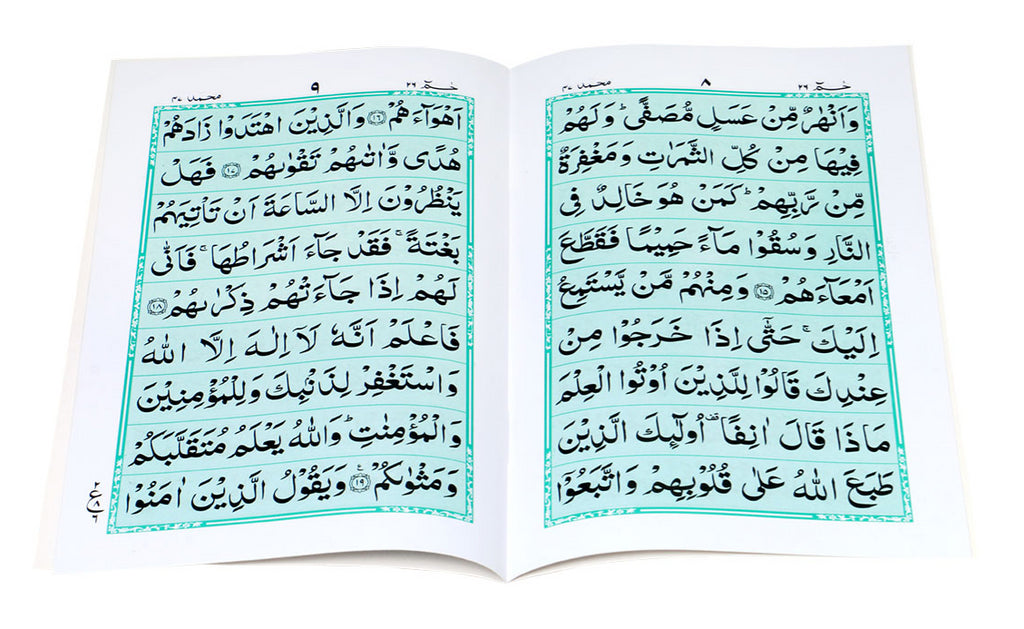 حٰمٓ ٢٦
٨
محمد ٤٧
وَاَنْهٰرٌ مِّنْ عَسَلٍ مُّصَفًّىؕ وَلَهُمْ
فِيْهَا مِنْ كُلِّ الثَّمَرٰتِ وَمَغْفِرَةٌ
مِّنْ رَّبِّهِمْؕ كَمَنْ هُوَ خَالِدٌ فِى
النَّارِ وَسُقُوْا مَآءً حَمِيْمًا فَقَطَّعَ
اَمْعَآءَهُمْ ۝١٥ وَمِنْهُمْ مَّنْ يَّسْتَمِعُ
اِلَيْكَۚ حَتّٰٓى اِذَا خَرَجُوْا مِنْ
عِنْدِكَ قَالُوْا لِلَّذِيْنَ اُوْتُوا الْعِلْمَ
مَاذَا قَالَ اٰنِفًاࣞ اُولٰٓئِكَ الَّذِيْنَ
طَبَعَ اللّٰهُ عَلٰى قُلُوْبِهِمْ وَاتَّبَعُوْۤا
حٰمٓ ٢٦
٩
محمد ٤٧
اَهْوَآءَهُمْ ۝١٦ وَالَّذِيْنَ اهْتَدَوْا زَادَهُمْ
هُدًى وَّاٰتٰىهُمْ تَقْوٰىهُمْ ۝١٧ فَهَلْ
يَنْظُرُوْنَ اِلَّا السَّاعَةَ اَنْ تَاْتِيَهُمْ
بَغْتَةًۚ فَقَدْ جَآءَ اَشْرَاطُهَاۚ فَاَنّٰى
لَهُمْ اِذَا جَآءَتْهُمْ ذِكْرٰىهُمْ ۝١٨
فَاعْلَمْ اَنَّهٗ لَاۤ اِلٰهَ اِلَّا اللّٰهُ
وَاسْتَغْفِرْ لِذَنْۢبِكَ وَلِلْمُؤْمِنِيْنَ
وَالْمُؤْمِنٰتِؕ وَاللّٰهُ يَعْلَمُ مُتَقَلَّبَكُمْ
وَمَثْوٰىكُمْ ۝١٩ وَيَقُوْلُ الَّذِيْنَ اٰمَنُوْا
٢
ع
٨
٦